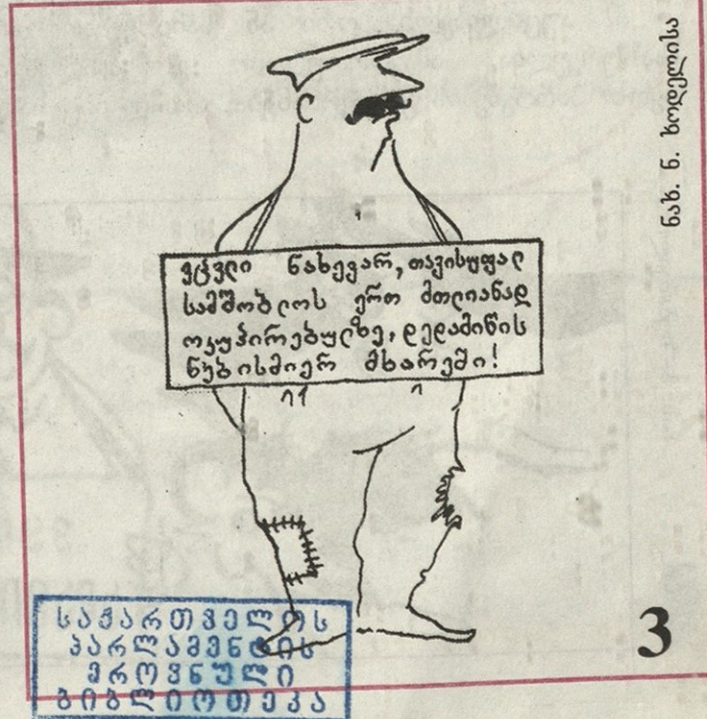 ნახ. ნ. ხოდელისა
ვცვლი ნახევარ, თავისუფალ
სამშობლოს ერთ მთლიანად
ოკუპირებულზე, დედამიწის
ნებისმიერ მხარეში!
3
საქართველოს
პარლამენტის
ეროვნული
ბიბლიოთეკა